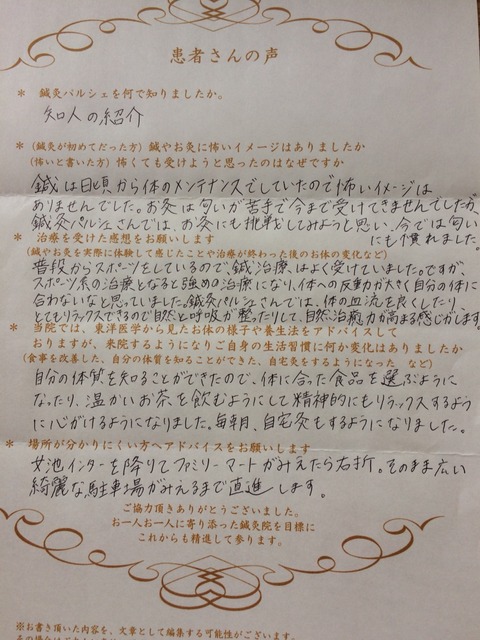 患者さんの声
* 鍼灸パルシェを何で知りましたか。
知人の紹介
* (鍼灸が初めてだった方) 鍼やお灸に怖いイメージはありましたか
(怖いと書いた方) 怖くても受けようと思ったのはなぜですか
鍼は日頃から体のメンテナンスでしていたので怖いイメージは
ありませんでした。お灸は匂いが苦手で今まで受けてきませんでしたが、
鍼灸パルシェさんでは、お灸にも挑戦してみようと思い、今では匂い
にも慣れました。
* 治療を受けた感想をお願いします
(鍼やお灸を実際に体験して感じたことや治療が終わった後のお体の変化など)
普段からスポーツをしているので、鍼治療はよく受けていました。ですが、
スポーツ系の治療となると強めの治療になり、体への反動が大きく自分の体に
合わないなと思っていました。鍼灸パルシェさんでは、体の血流を良くしたり、
とてもリラックスできるので自然と呼吸が整ったりして、自然治癒力が高まる感じがします。
* 当院では、東洋医学から見たお体の様子や養生法をアドバイスして
おりますが、来院するようになりご自身の生活習慣に何か変化はありましたか
(食事を改善した、自分の体質を知ることができた、自宅灸をするようになった など)
自分の体質を知ることができたので、体に合った食品を選ぶように
なったり、温かいお茶を飲むようにして精神的にもリラックスするよう
に心がけるようになりました。毎朝、自宅灸もするようになりました。
* 場所が分かりにくい方へアドバイスをお願いします
女池インターを降りてファミリーマートがみえたら右折。そのまま広い
綺麗な駐車場がみえるまで直進します。
ご協力頂きありがとうございました。
お一人お一人に寄り添った鍼灸院を目標に
これからも精進して参ります。
※お書き頂いた内容を、文章として編集する可能性がございます。